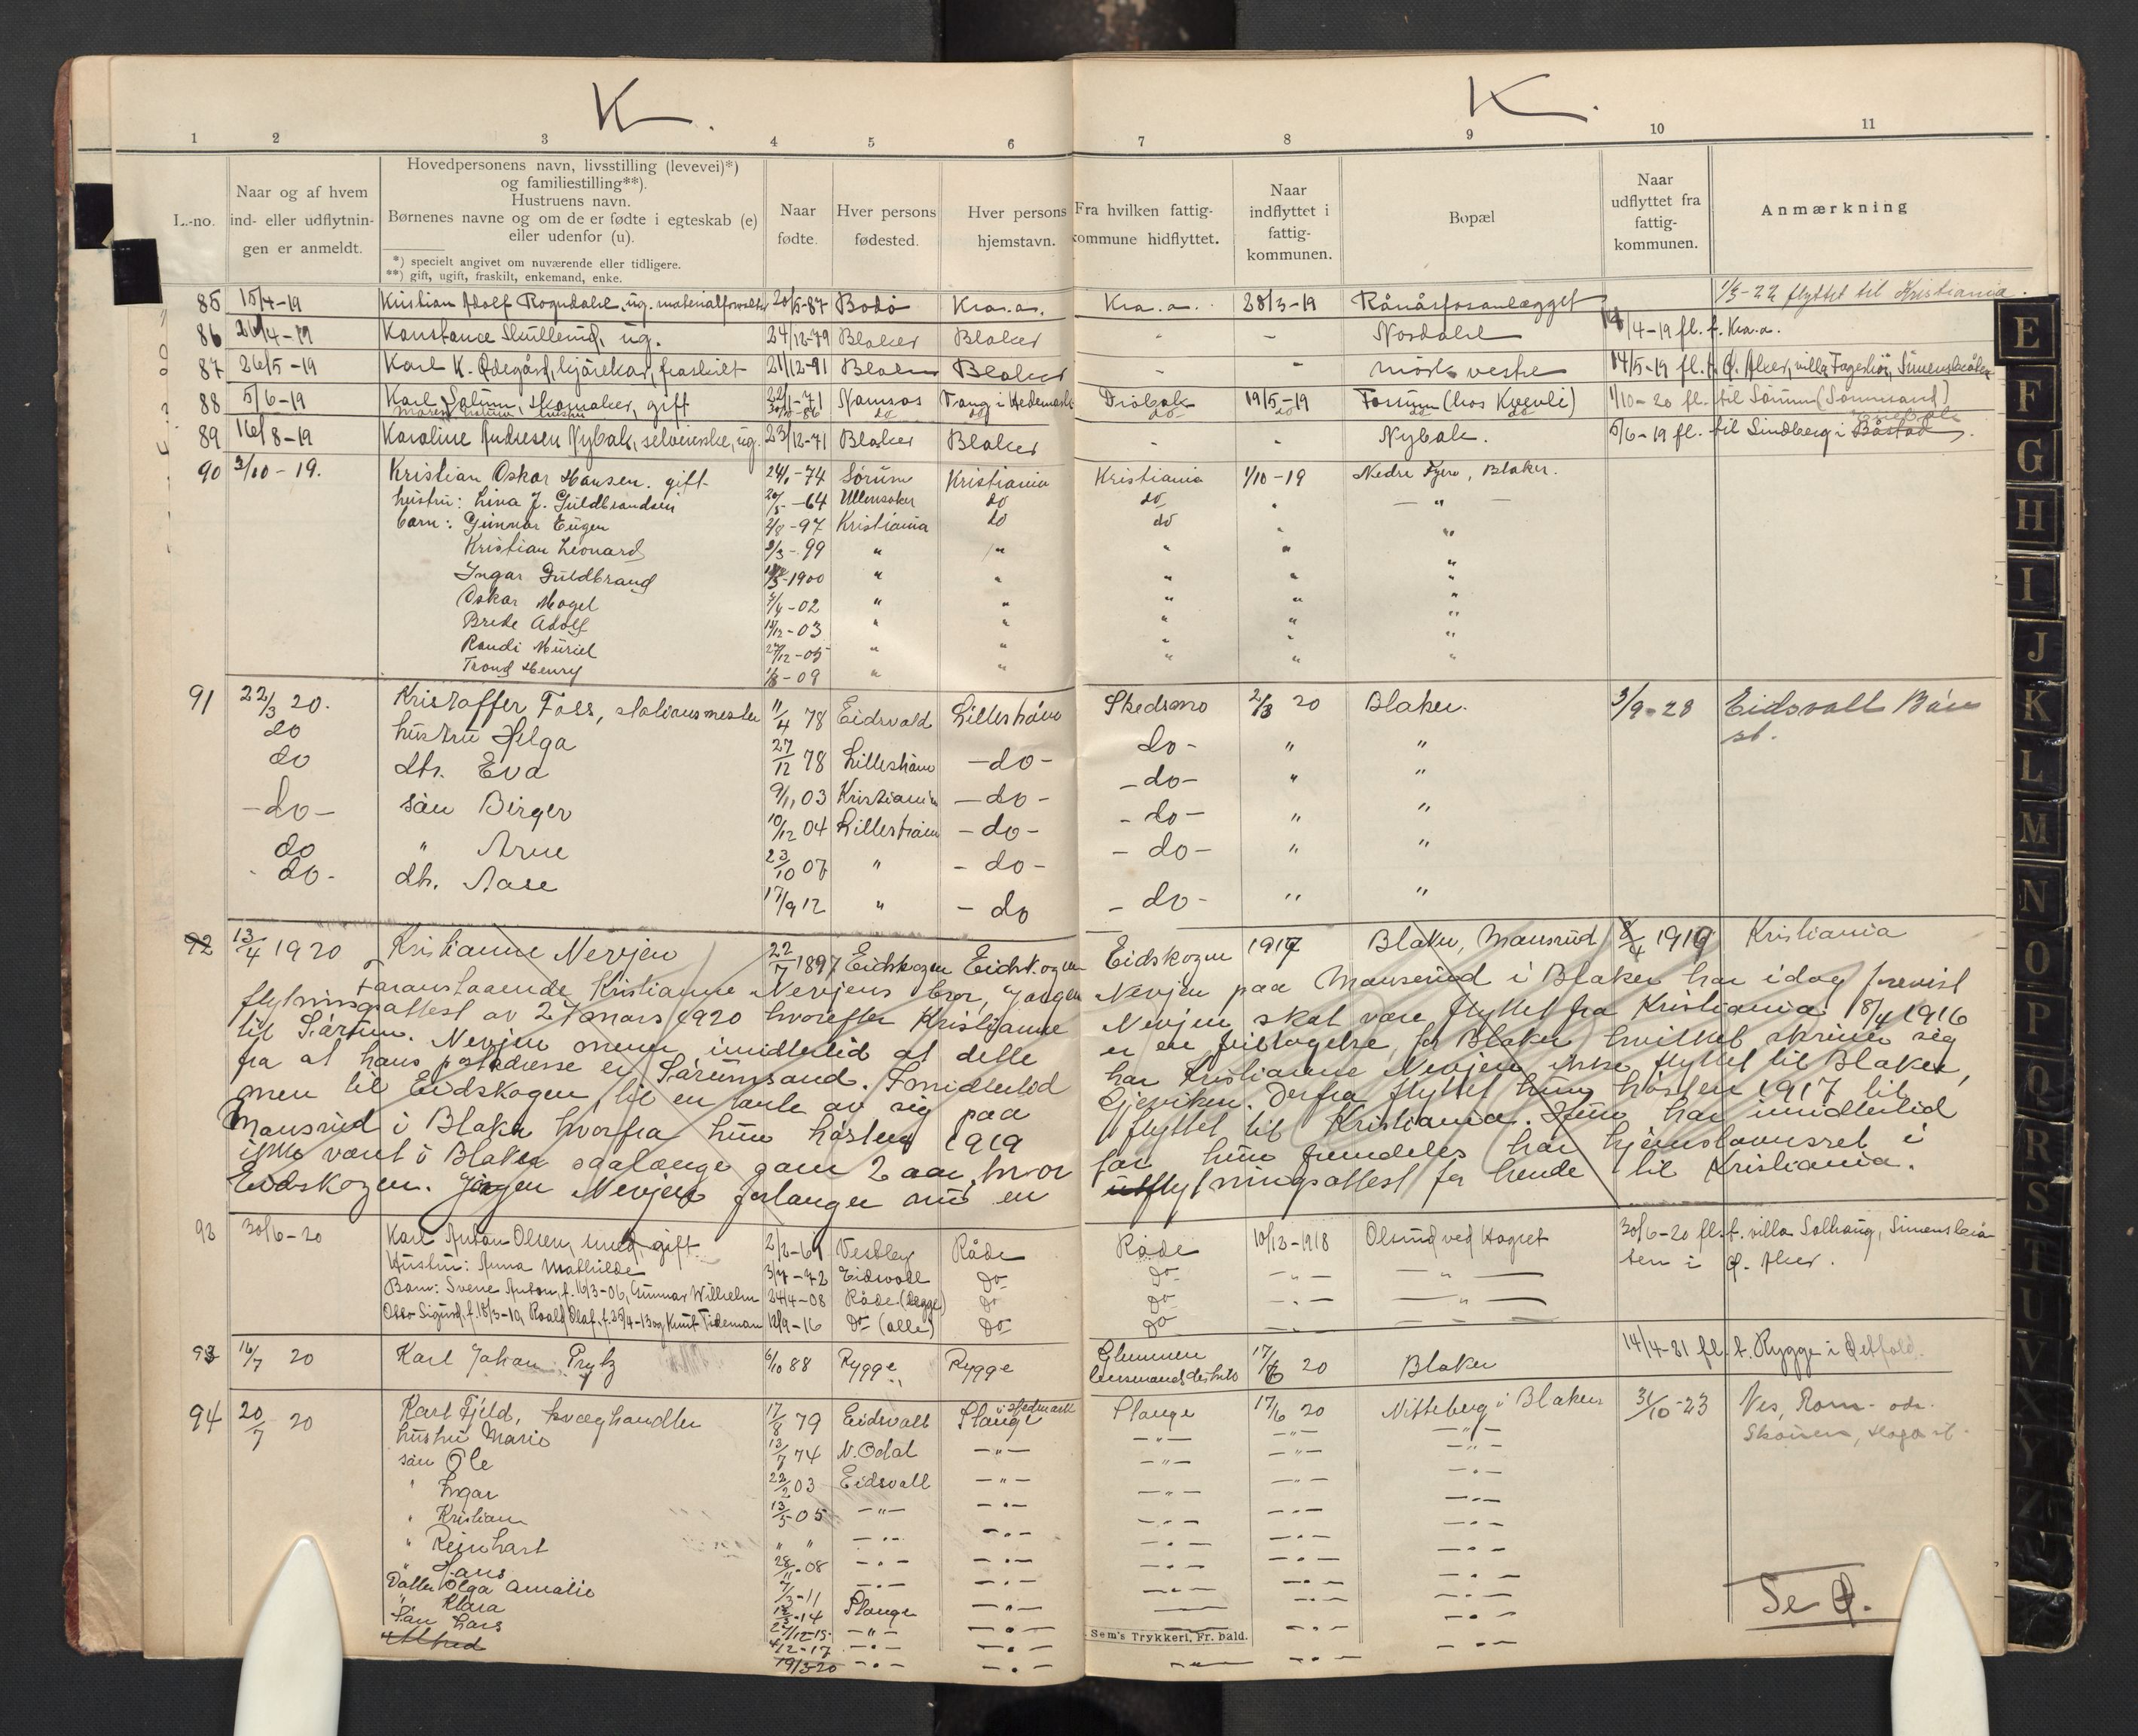 K.
K.
1 2 3 4 5 6 7 8 9 10 11
L.-no.
Naar og af hvem ind- eller udflytnin-gen er anmeldt.
Hovedpersonens navn, livsstilling (levevei)*)
og familiestilling**).
Hustruens navn.
Børnenes navne og om de er fødte i egteskab (e)
eller udenfor (u).
*) specielt angivet om nuværende eller tidligere.
**) gift, ugift, fraskilt, enkemand, enke.
Naar fødte.
Hver persons fødested.
Hver persons hjemstavn.
Fra hvilken fattig-kommune hidflyttet.
Naar indflyttet i fattig-kommunen.
Bopæl
Naar udflyttet fra fattig-kommunen.
Anmærkning
85 15/4-19 Kristian Adolf Rogndahl, ug. 20/5-87 Bodø Kra.a. Kra.a. 28/3-19 Rånåsfosanlægget 1/5-22 flyttet til Kristiania.
86 26/4-19 Konstance Skullerud, ug. 24/12-79 Blaker Blaker - - Nordahl /4-19 fl. t. Kra.a.
87 26/5-19 Karl K. Ødegård, kjørekar, fraskilt 21/12-91 Blaker Blaker - - Mørk vestre 14/5-19 fl. t. Ø. Aker, villa Fagerli,
88 5/6-19 Karl Solum, skomaker, gift 22/1-71 Namsos Vang i Hedemark Drøbak 19/5-19 Fossum (hos Kvevli) 1/10-20 fl. til Sørum (Sørumsand)
do do do do do do
89 16/8-19 Karoline Andresen Nybak, selveierske, ug. 23/12-71 Blaker Blaker - - Nybak. 5/6-19 fl. til Lindberg i Båstad
90 3/10-19. Kristian Oskar Hansen. gift 24/1-74 Sørum Kristiania Kristiania 1/10-19 Nedre Fjero, Blaker.
hustru: Lina J. Guldbrandsen 20/5-64 Ullensaker do do " — " —
barn: Gunnar Eugen 2/8-97 Kristiania do do " "
Kristian Leonard 2/3-99 " " " " "
Ingar Guldbrand /5-1900 " " " " "
Oskar Magel 5/4-02 " " " " "
Brede Adolf 14/12-03 " " " " "
Randi Müriel 27/12-05 " " " " "
Trond Henry 1/8-09 " " " " "
91 22/3 20. Kristoffer Foss, stationsmester 11/4 78 Eidsvold Lillestrøm Skedsmo 2/3 20 Blaker. 3/9-28 Eidsvoll Bån
do hustru Helga 27/12 78 Lillestrøm -do- do- " " st.
do dtr. Eva 9/11 03 Kristiania -do- -do- " "
-do- søn Birger 10/12 04 Lillestrøm -do- -do- " "
do " Arne 23/10 07 " -do- -do- " "
-do- dtr. Aase 17/9 12 " -do -do- " "
92 13/4 1920 Kristianne Nevjen 22/7 1897 Eidskogen Eidskogen Eidskogen 1917 Blaker, Mansrud 8/4 1919 Kristiania
Foranstaaende Kristianne Nevjens bror, Jørgen Nevjen paa Mansrud i Blaker har idag forevist
flytningsattest av 27 mars 1920 hvorefter Kristianne Nevjen skal være flyttet fra Kristiania 18/4 1916
til Sørum. Nevjen mener imidlertid at dette er en feiltagelse for Blaker hvilket skriver sig
fra at hans postadresse er Sørumsand. Imidlertid har Kristianne Nevjen ikke flyttet til Blaker,
men til Eidskogen til en tante av sig paa Gjeviken. Derfra flyttet hun høsten 1917 til
Mansrud i Blaker hvorfra hun høsten 1919 flyttet til Kristiania. Hun har imidlertid
ikke været i Blaker saalænge som 2 aar, hvor for hun fremdeles har hjemstavnsret i
Eidskogen. Jørgen Nevjen forlanger nu en utflytningsattest for hende til Kristiania.
93 30/6-20 Karl Anton Olsen, smed, gift 2/2-61 Vestby Råde Råde 10/12-1918 Olsrud ved Hogset 30/6-20 fl. t. villa Solhaug,
Hustru: Anna Mathilde 3/7-72 Eidsvoll Do Do — " — — " — i Ø. Aker.
Barn: Sverre Anton, f. 16/3-06, Gunnar Wilhelm 24/4-08 Råde (begge) Do Do — " — — " —
Otto Sigurd, f. 18/3-10, Roald Olaf, f. 25/4-13 og Knut Tideman 12/9-16 Do (alle) Do Do
93 16/7 20 Karl Johan Prytz 6/10 88 Rygge Rygge Glemmen lensmandsdistrikt 17/6 20 Blaker 14/4-21 fl. t. Rygge i Østfold.
94 20/7 20 Karl Fjeld, kvæghandler 17/8 79 Eidsvoll Stange i Hedmark Stange 17/6 20 Nitteberg i Blaker 31/10-23 Ves, Rom-
hustru Marie 13/7 74 N. Odal — " — — " — — " — — " —
søn Ole 22/2 03 Eidsvoll — " — — " — — " — — " —
" Ingar 13/5 05 — " — — " — — " — — " — — " —
" Kristian " " — " — — " — — " — — " — — " —
" Reinhart 28/11-08 — " — — " — — " — — " — — " —
" Hans 7/3-11 — " — — " — — " — — " — — " —
Datter Olga Amalie /3-14 Stange — " — — " — — " —
" Klara 27/12-15 — " — — " — — " — — " —
Søn Lars 4/12-17 — " — — " — — " — — " —
Alfred 19/3-20 — " — — " — — " — — " —
Se Q.
Sem's Trykkeri, Fr.hald.
E
F
G
H
I
J
K
L
M
N
O
P
Q
R
S
T
U
V